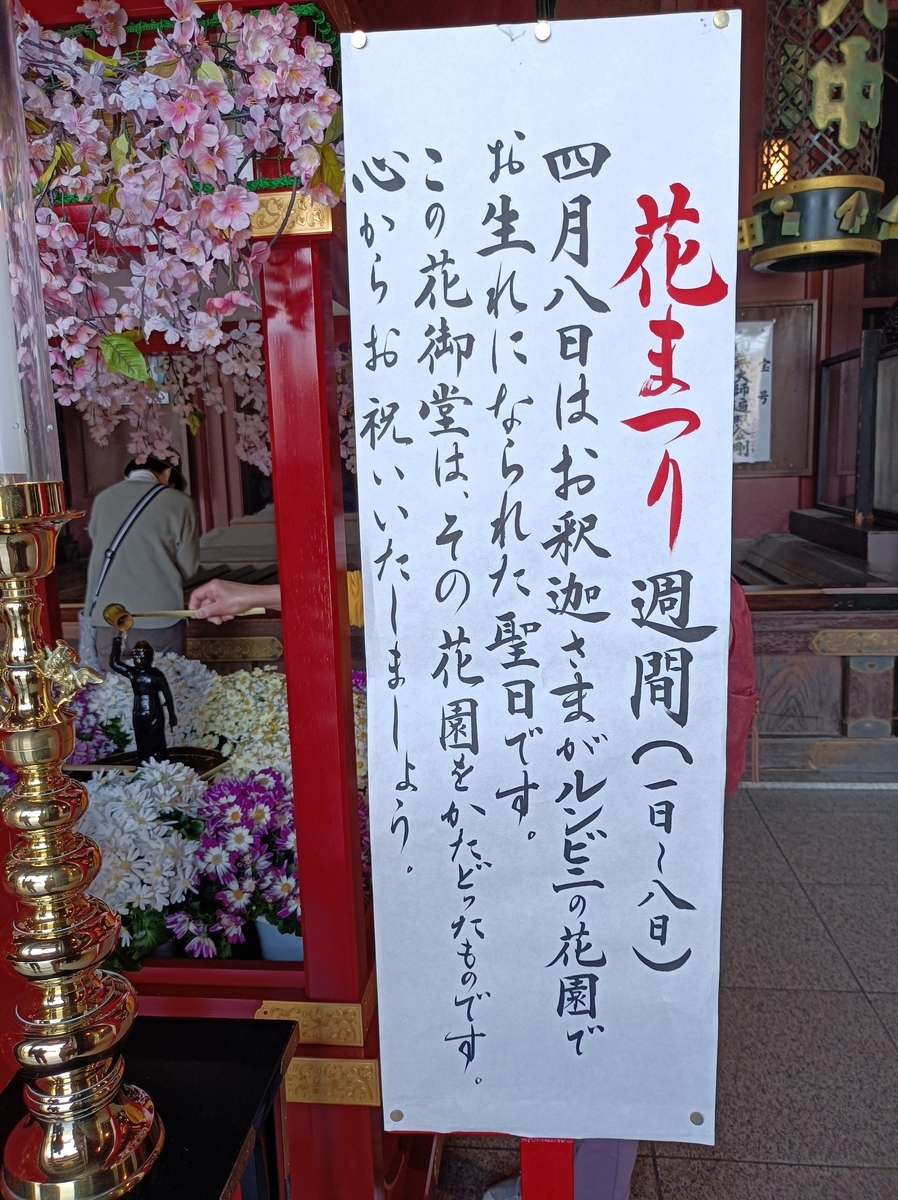 花まつり週間(一日~八日)
四月八日はお釈迦さまがルンビニの花園で
お生れになられた聖日です。
この花御堂は、その花園をかたどったものです。
心からお祝いいたしましょう。
中
宝号
大師遍照金剛